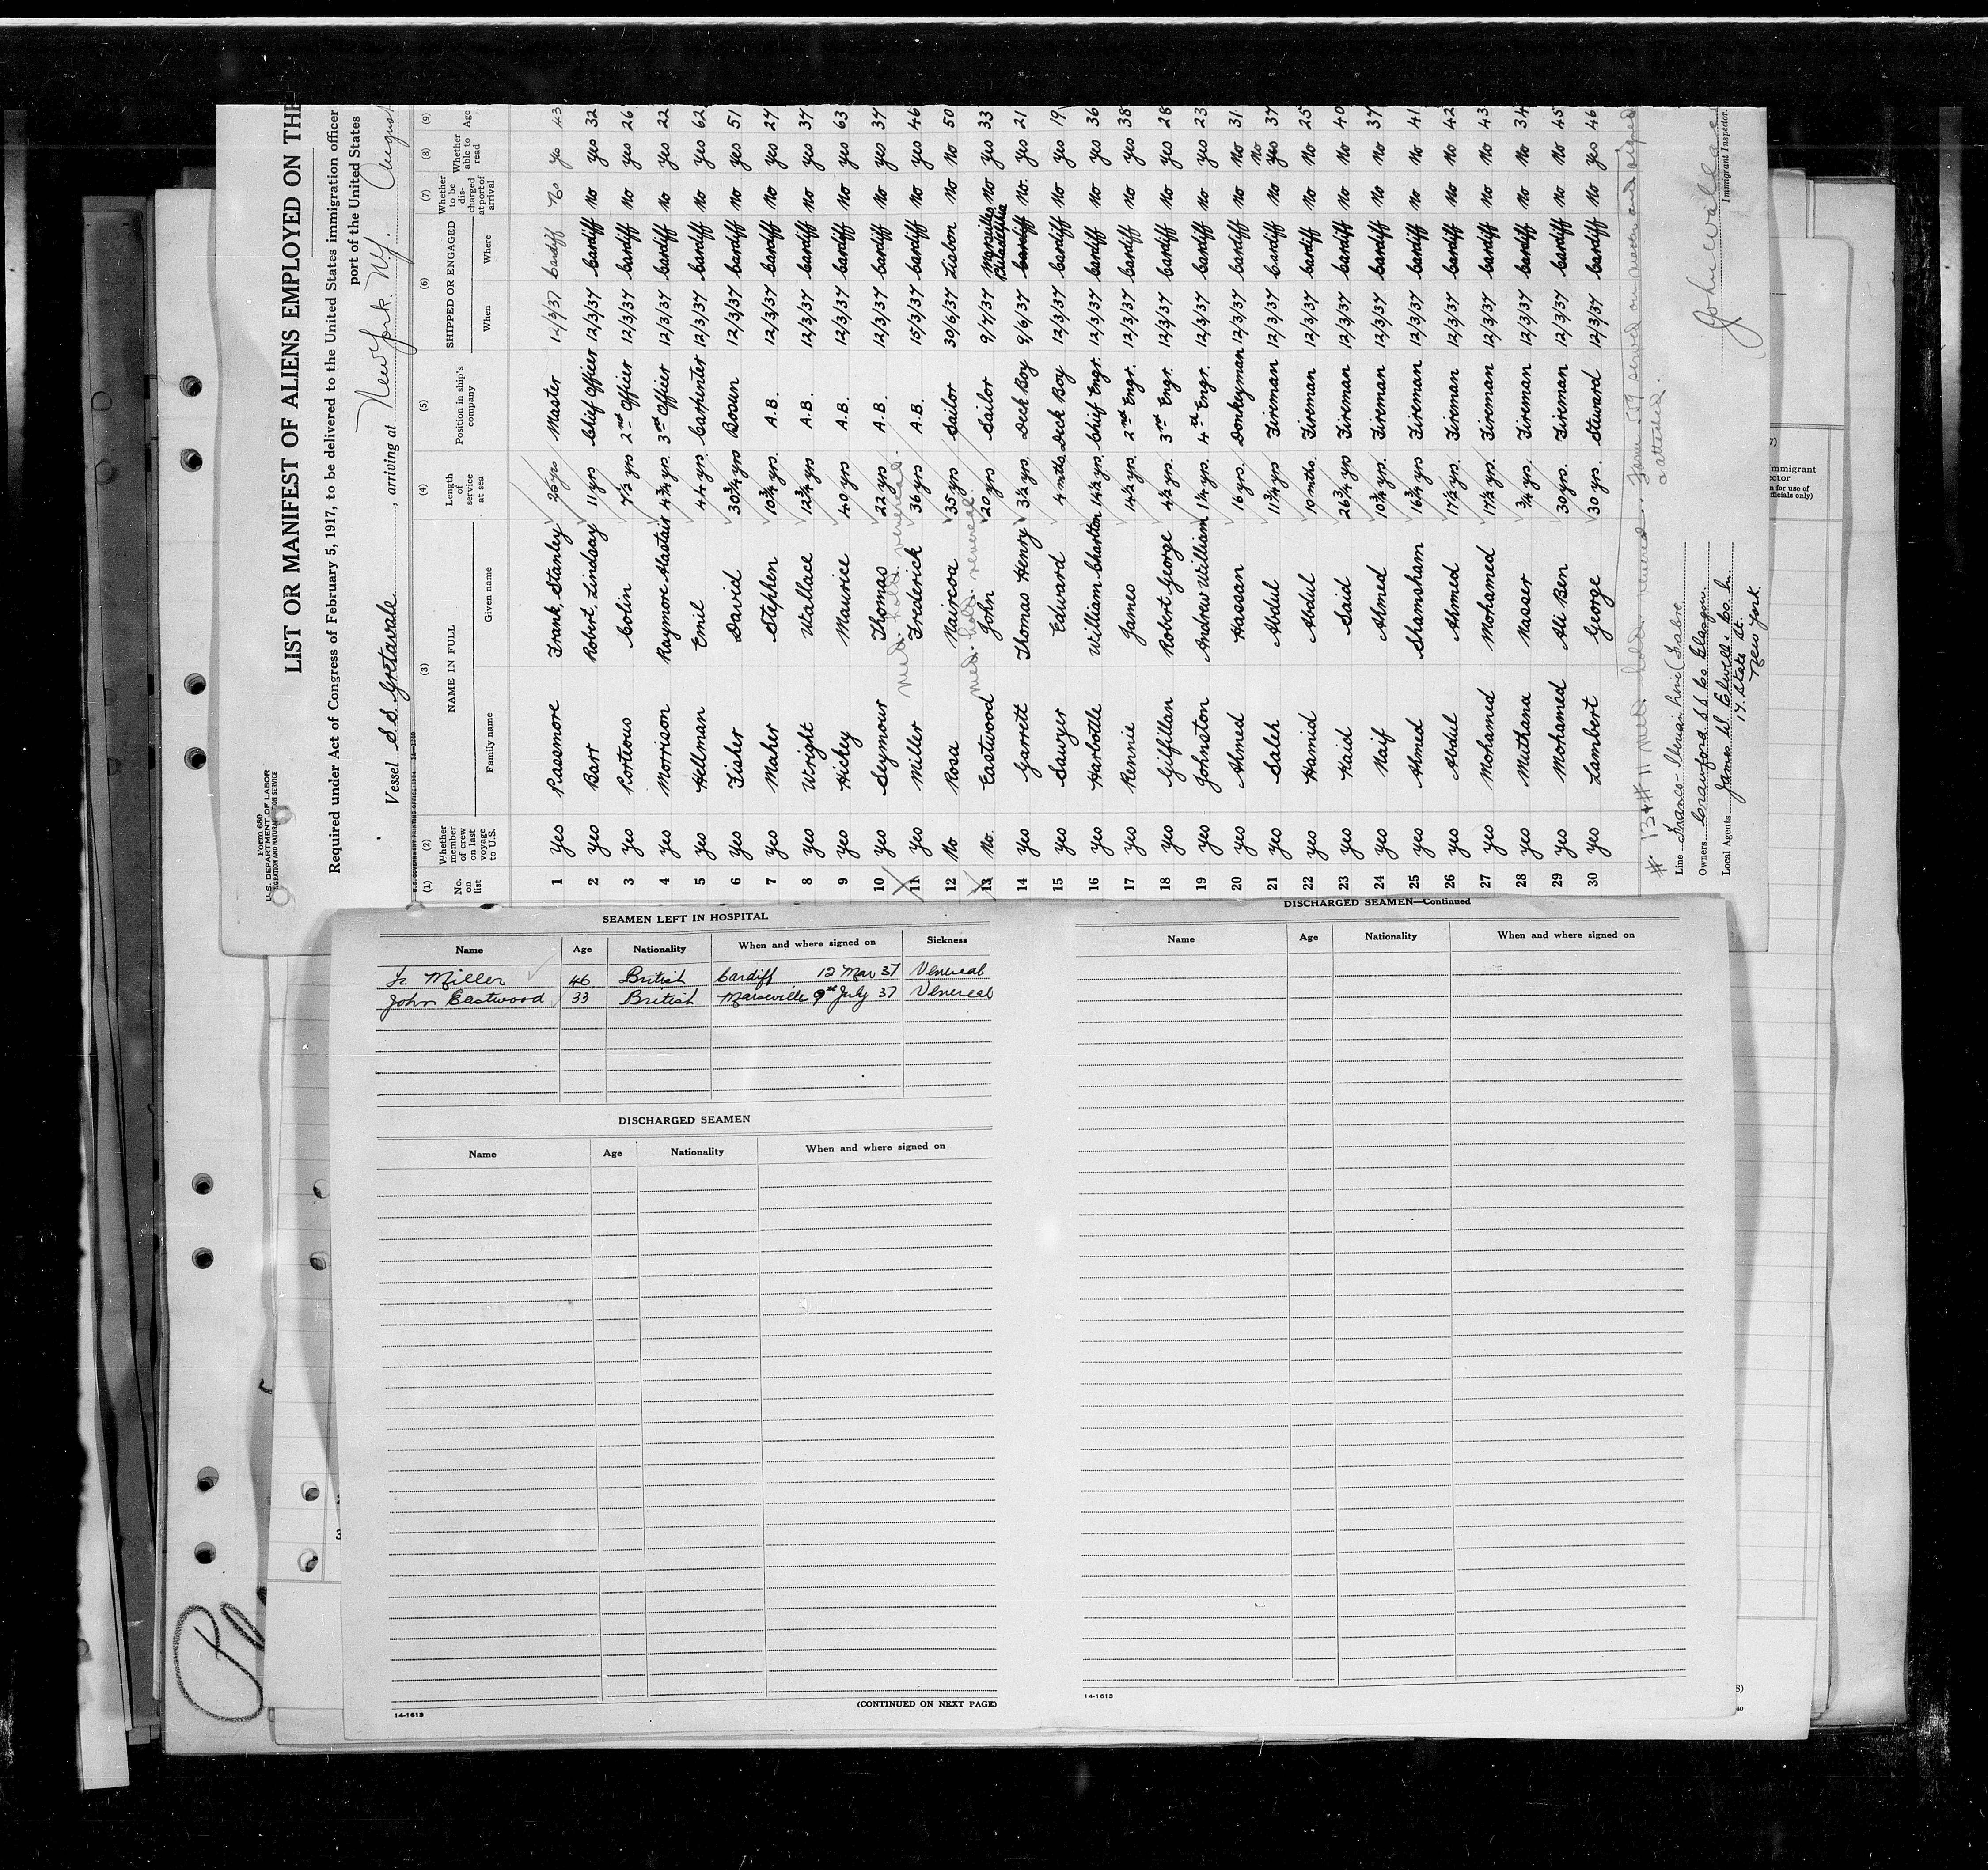 Form 680
U. S. DEPARTMENT OF LABOR
IMMIGRATION AND NATURALIZATION SERVICE
LIST OR MANIFEST OF ALIENS EMPLOYED ON THE
Required under Act of Congress of February 5, 1917, to be delivered to the United States immigration officer
port of the United States
Vessel S.S. Gretavale, arriving at New York. N.Y. August
(1) (2) (3) (4) (5) (6) (7) (8) (9)
No. on list | Whether member of crew on last voyage to U.S. | NAME IN FULL | Family name | Given name | Length of service at sea | Position in ship's company | SHIPPED OR ENGAGED | When | Where | Whether to be discharged at port of arrival | Whether able to read | Age
1 Yes Passmore Frank, Stanley 25 yrs Master 12/3/37 Cardiff No Yes 43
2 Yes Barr Robert, Lindsay 11 yrs Chief Officer 12/3/37 Cardiff No Yes 32
3 Yes Porteous Colin 7½ yrs 2nd Officer 12/3/37 Cardiff No Yes 26
4 Yes Morrison Raymore Alastair 4¾ yrs. 3rd Officer 12/3/37 Cardiff No Yes 22
5 Yes Hellman Emil 44 yrs. Carpenter 12/3/37 Cardiff No Yes 62
6 Yes Fisher David 30¾ yrs Bosun 12/3/37 Cardiff No Yes 51
7 Yes Maher Stephen 10¾ yrs. A.B. 12/3/37 Cardiff No Yes 27
8 Yes Wright Wallace 12¾ yrs A.B. 12/3/37 Cardiff No Yes 37
9 Yes Hickey Maurice 40 yrs A.B. 12/3/37 Cardiff No Yes 63
10 Yes Seymour Thomas 22 yrs A.B. 12/3/37 Cardiff No Yes 37
med. hold. venereal.
11 Yes Miller Frederick 36 yrs A.B. 15/3/37 Cardiff No Yes 46
12 No Rosa Naircoa 35 yrs Sailor 30/6/37 Lisbon No No 50
med. hold venereal.
13 No. Eastwood John 20 yrs. Sailor 9/7/37 Marseilles No Yes 33
14 Yes Garrett Thomas Henry 3½ yrs. Deck Boy 9/6/37 Cardiff No. Yes 21
15 Yes Sawyer Edward 4 mths. Deck Boy 12/3/37 Cardiff No Yes 19
16 Yes Harbottle William Charlton 14½ yrs. Chief Engr. 12/3/37 Cardiff No Yes 36
17 Yes Rennie James 14½ yrs. 2nd Engr. 12/3/37 Cardiff No Yes 38
18 Yes Gilfillan Robert George 4½ yrs. 3rd Engr. 12/3/37 Cardiff No Yes 28
19 Yes Johnston Andrew William 1¼ yrs. 4th Engr. 12/3/37 Cardiff No Yes 23
20 Yes Ahmed Hassan 16 yrs. Donkeyman 12/3/37 Cardiff No No 31
21 Yes Saleh Abdul 11¾ yrs Fireman 12/3/37 Cardiff No No Yes 37
22 Yes Hamid Abdul 10 mths. Fireman 12/3/37 Cardiff No No 25
23 Yes Kaid Said 26¾ yrs Fireman 12/3/37 Cardiff No No 40
24 Yes Naif Ahmed 10¾ yrs. Fireman 12/3/37 Cardiff No No 37
25 Yes Ahmed Shamsham 16¾ yrs Fireman 12/3/37 Cardiff No No 41
26 Yes Abdul Ahmed 17½ yrs. Fireman 12/3/37 Cardiff No No 42
27 Yes Mohamed Mohamed 17½ yrs. Fireman 12/3/37 Cardiff No No 43
28 Yes Muthana Nasser ¾ yrs. Fireman 12/3/37 Cardiff No No 34
29 Yes Mohamed Ali Ben 30 yrs. Fireman 12/3/37 Cardiff No No 45
30 Yes Lambert George 30 yrs. Steward 12/3/37 Cardiff No Yes 46
# 13 + # 11 med. hold. venereal. Form 559 served on master and signed
attached.
Line
Owners Crawford S S Co Glasgow.
Local Agents James W Elwell & Co Inc.
17. State St.
New York.
John Wallace
Immigrant Inspector.
SEAMEN LEFT IN HOSPITAL
Name | Age | Nationality | When and where signed on | Sickness
Fr. Miller 46 British Cardiff 12 Mar 37 Venereal
John Eastwood 33 British Marseille 9th July 37 Venereal
DISCHARGED SEAMEN
Name | Age | Nationality | When and where signed on
(CONTINUED ON NEXT PAGE)
14-1613
DISCHARGED SEAMEN—Continued
Name | Age | Nationality | When and where signed on
14-1613